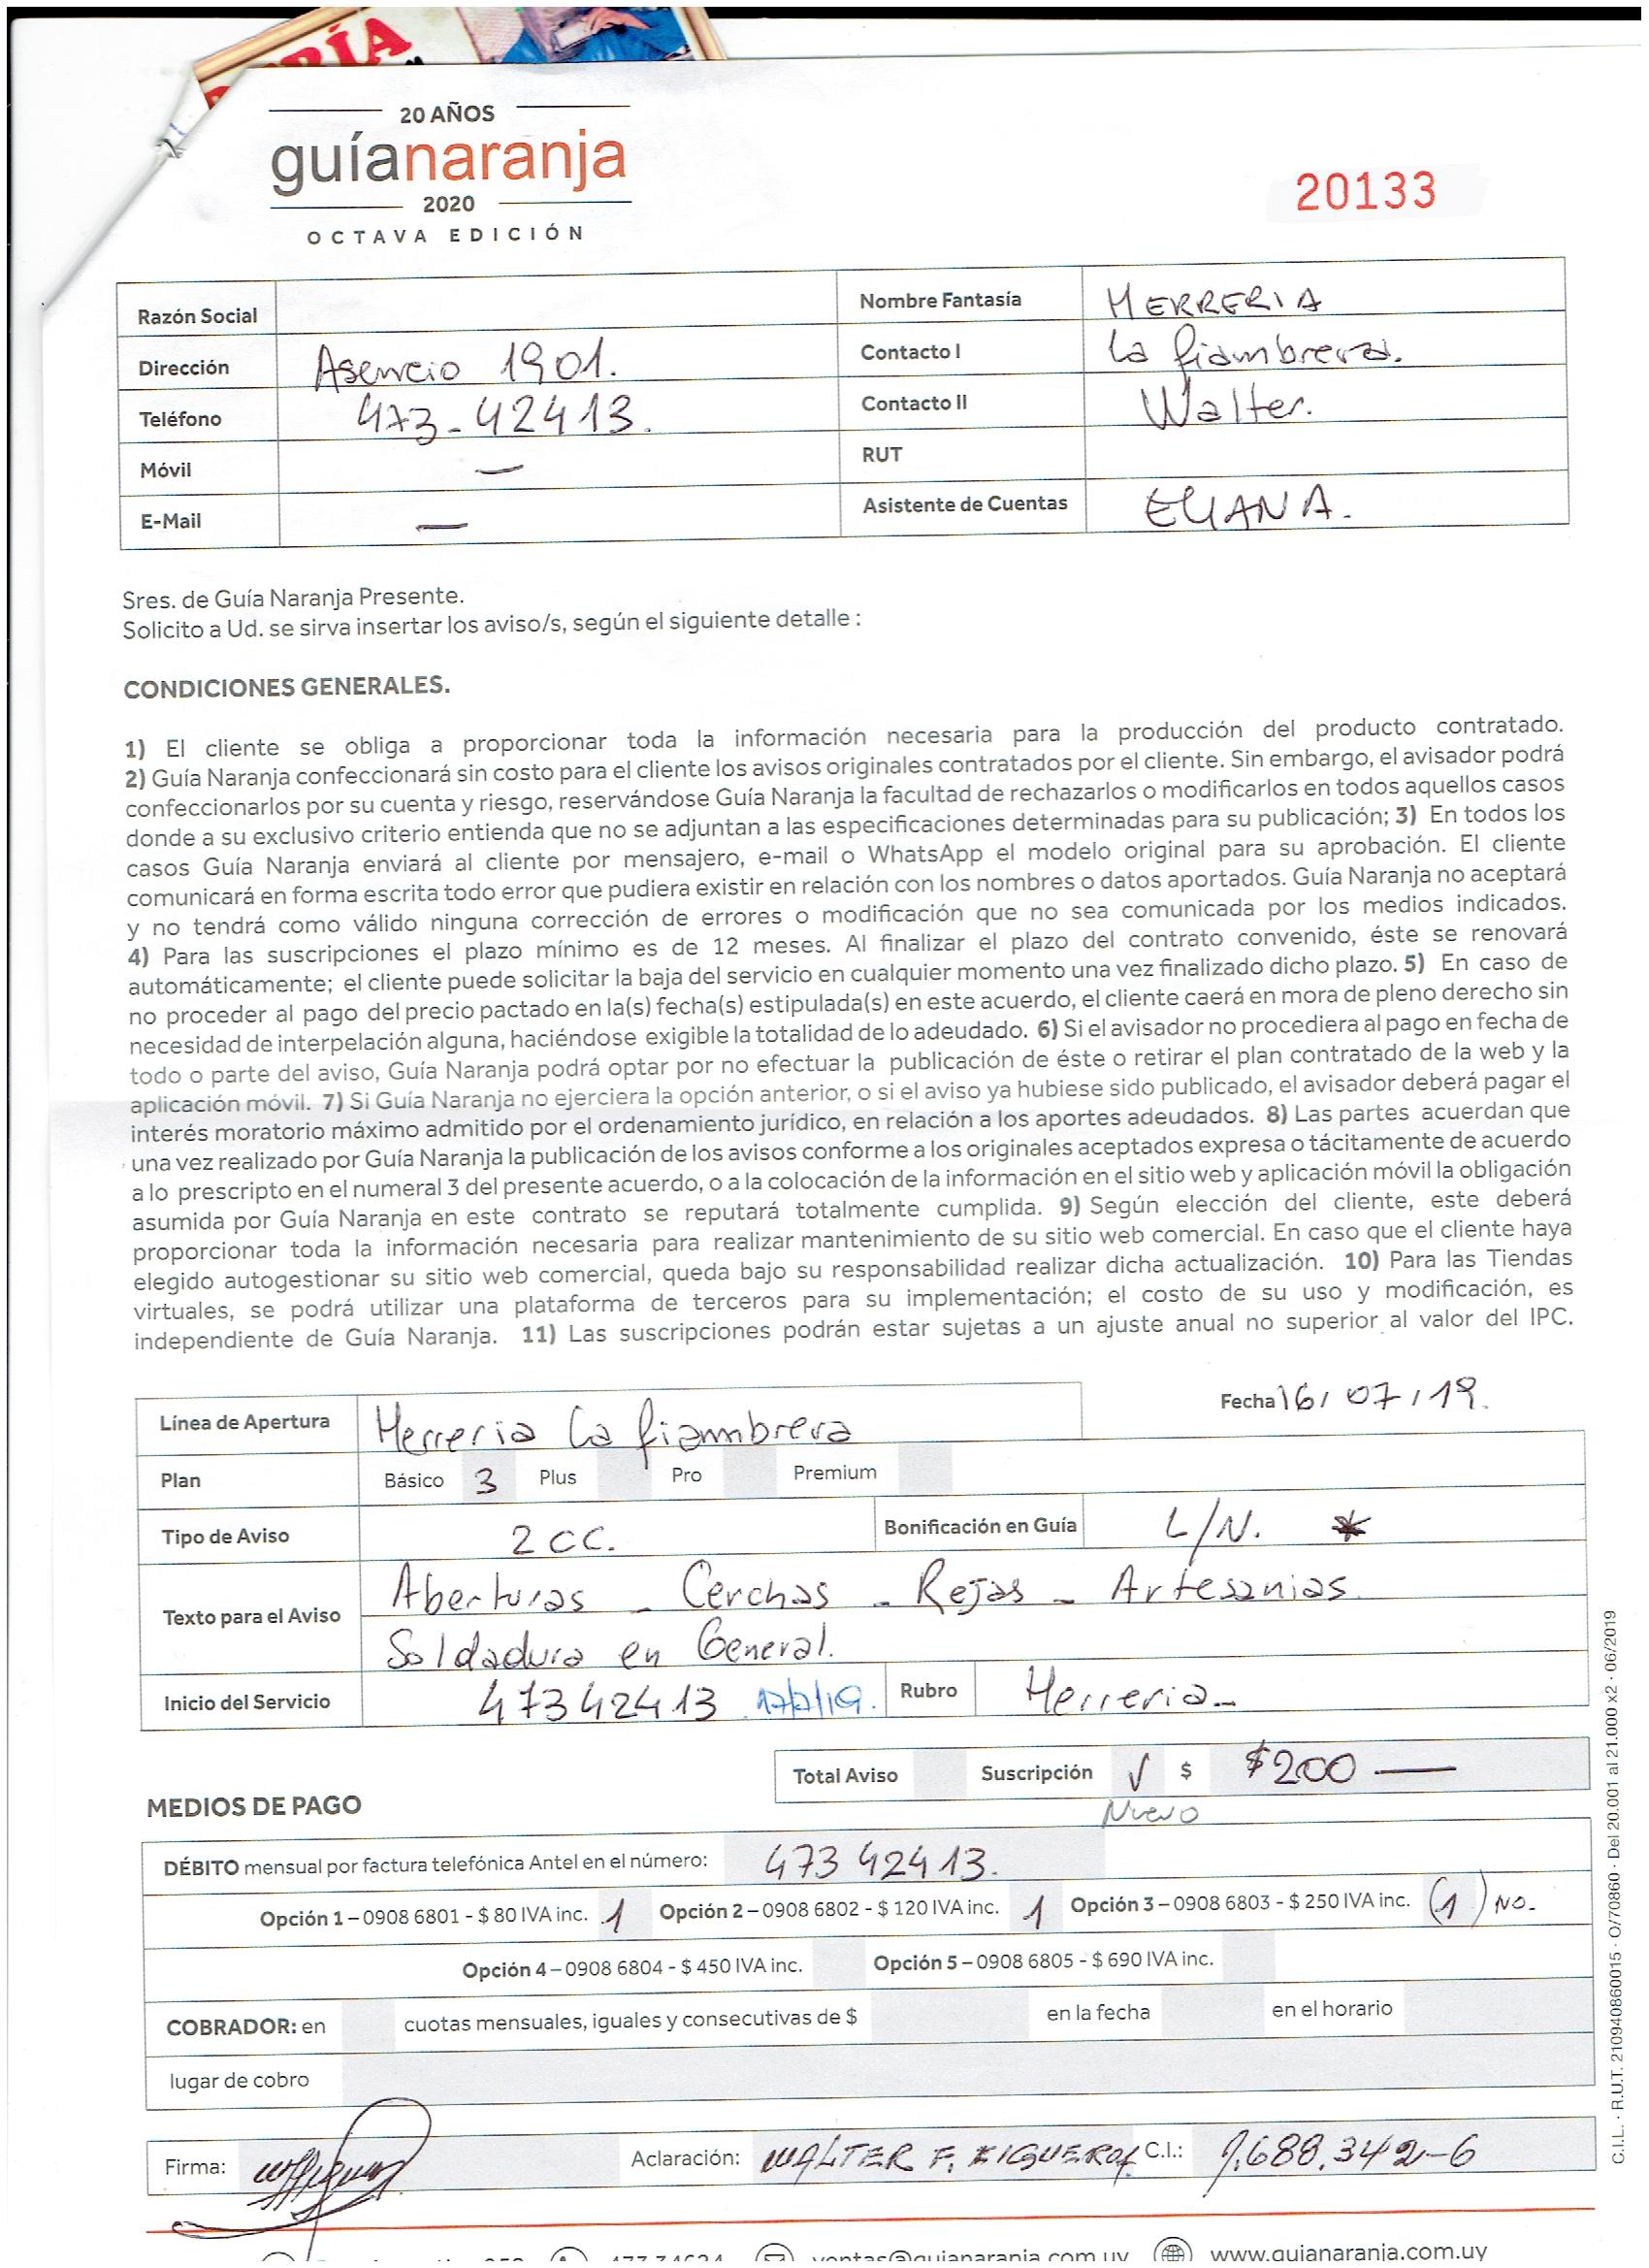 RÍA
20 AÑOS
guíanaranja
2020
OCTAVA EDICIÓN
20133
Razón Social
Nombre Fantasía HERRERIA
Dirección Asencio 1901.
Contacto I La fiambrera.
Teléfono 473-42413.
Contacto II Walter.
Móvil —
RUT
E-Mail —
Asistente de Cuentas ELIANA.
Sres. de Guía Naranja Presente.
Solicito a Ud. se sirva insertar los aviso/s, según el siguiente detalle :
CONDICIONES GENERALES.
1) El cliente se obliga a proporcionar toda la información necesaria para la producción del producto contratado.
2) Guía Naranja confeccionará sin costo para el cliente los avisos originales contratados por el cliente. Sin embargo, el avisador podrá
confeccionarlos por su cuenta y riesgo, reservándose Guía Naranja la facultad de rechazarlos o modificarlos en todos aquellos casos
donde a su exclusivo criterio entienda que no se adjuntan a las especificaciones determinadas para su publicación; 3) En todos los
casos Guía Naranja enviará al cliente por mensajero, e-mail o WhatsApp el modelo original para su aprobación. El cliente
comunicará en forma escrita todo error que pudiera existir en relación con los nombres o datos aportados. Guía Naranja no aceptará
y no tendrá como válido ninguna corrección de errores o modificación que no sea comunicada por los medios indicados.
4) Para las suscripciones el plazo mínimo es de 12 meses. Al finalizar el plazo del contrato convenido, éste se renovará
automáticamente; el cliente puede solicitar la baja del servicio en cualquier momento una vez finalizado dicho plazo. 5) En caso de
no proceder al pago del precio pactado en la(s) fecha(s) estipulada(s) en este acuerdo, el cliente caerá en mora de pleno derecho sin
necesidad de interpelación alguna, haciéndose exigible la totalidad de lo adeudado. 6) Si el avisador no procediera al pago en fecha de
todo o parte del aviso, Guía Naranja podrá optar por no efectuar la publicación de éste o retirar el plan contratado de la web y la
aplicación móvil. 7) Si Guía Naranja no ejerciera la opción anterior, o si el aviso ya hubiese sido publicado, el avisador deberá pagar el
interés moratorio máximo admitido por el ordenamiento jurídico, en relación a los aportes adeudados. 8) Las partes acuerdan que
una vez realizado por Guía Naranja la publicación de los avisos conforme a los originales aceptados expresa o tácitamente de acuerdo
a lo prescripto en el numeral 3 del presente acuerdo, o a la colocación de la información en el sitio web y aplicación móvil la obligación
asumida por Guía Naranja en este contrato se reputará totalmente cumplida. 9) Según elección del cliente, este deberá
proporcionar toda la información necesaria para realizar mantenimiento de su sitio web comercial. En caso que el cliente haya
elegido autogestionar su sitio web comercial, queda bajo su responsabilidad realizar dicha actualización. 10) Para las Tiendas
virtuales, se podrá utilizar una plataforma de terceros para su implementación; el costo de su uso y modificación, es
independiente de Guía Naranja. 11) Las suscripciones podrán estar sujetas a un ajuste anual no superior al valor del IPC.
Fecha 16/ 07 / 19.
Línea de Apertura Herreria La fiambrera
Plan Básico 3 Plus Pro Premium
Tipo de Aviso 2 CC. Bonificación en Guía L/N. *
Texto para el Aviso Aberturas - Cerchas - Rejas - Artesanias
Soldadura en General.
Inicio del Servicio 47342413 17/7/19. Rubro Herreria-
Total Aviso Suscripción √ $ $200 —
Nuevo
MEDIOS DE PAGO
DÉBITO mensual por factura telefónica Antel en el número: 473 42413.
Opción 1 – 0908 6801 - $ 80 IVA inc. 1 Opción 2 – 0908 6802 - $ 120 IVA inc. 1 Opción 3 – 0908 6803 - $ 250 IVA inc. (1) NO.
Opción 4 – 0908 6804 - $ 450 IVA inc. Opción 5 – 0908 6805 - $ 690 IVA inc.
COBRADOR: en cuotas mensuales, iguales y consecutivas de $ en la fecha en el horario
lugar de cobro
Firma: Aclaración: WALTER F. FIGUEROA C.I.: 1.688.342-6
ventas@guianaranja.com.uy www.guianaranja.com.uy
C.I.L. · R.U.T. 210940860015 · O/70860 · Del 20.001 al 21.000 x2 · 06/2019